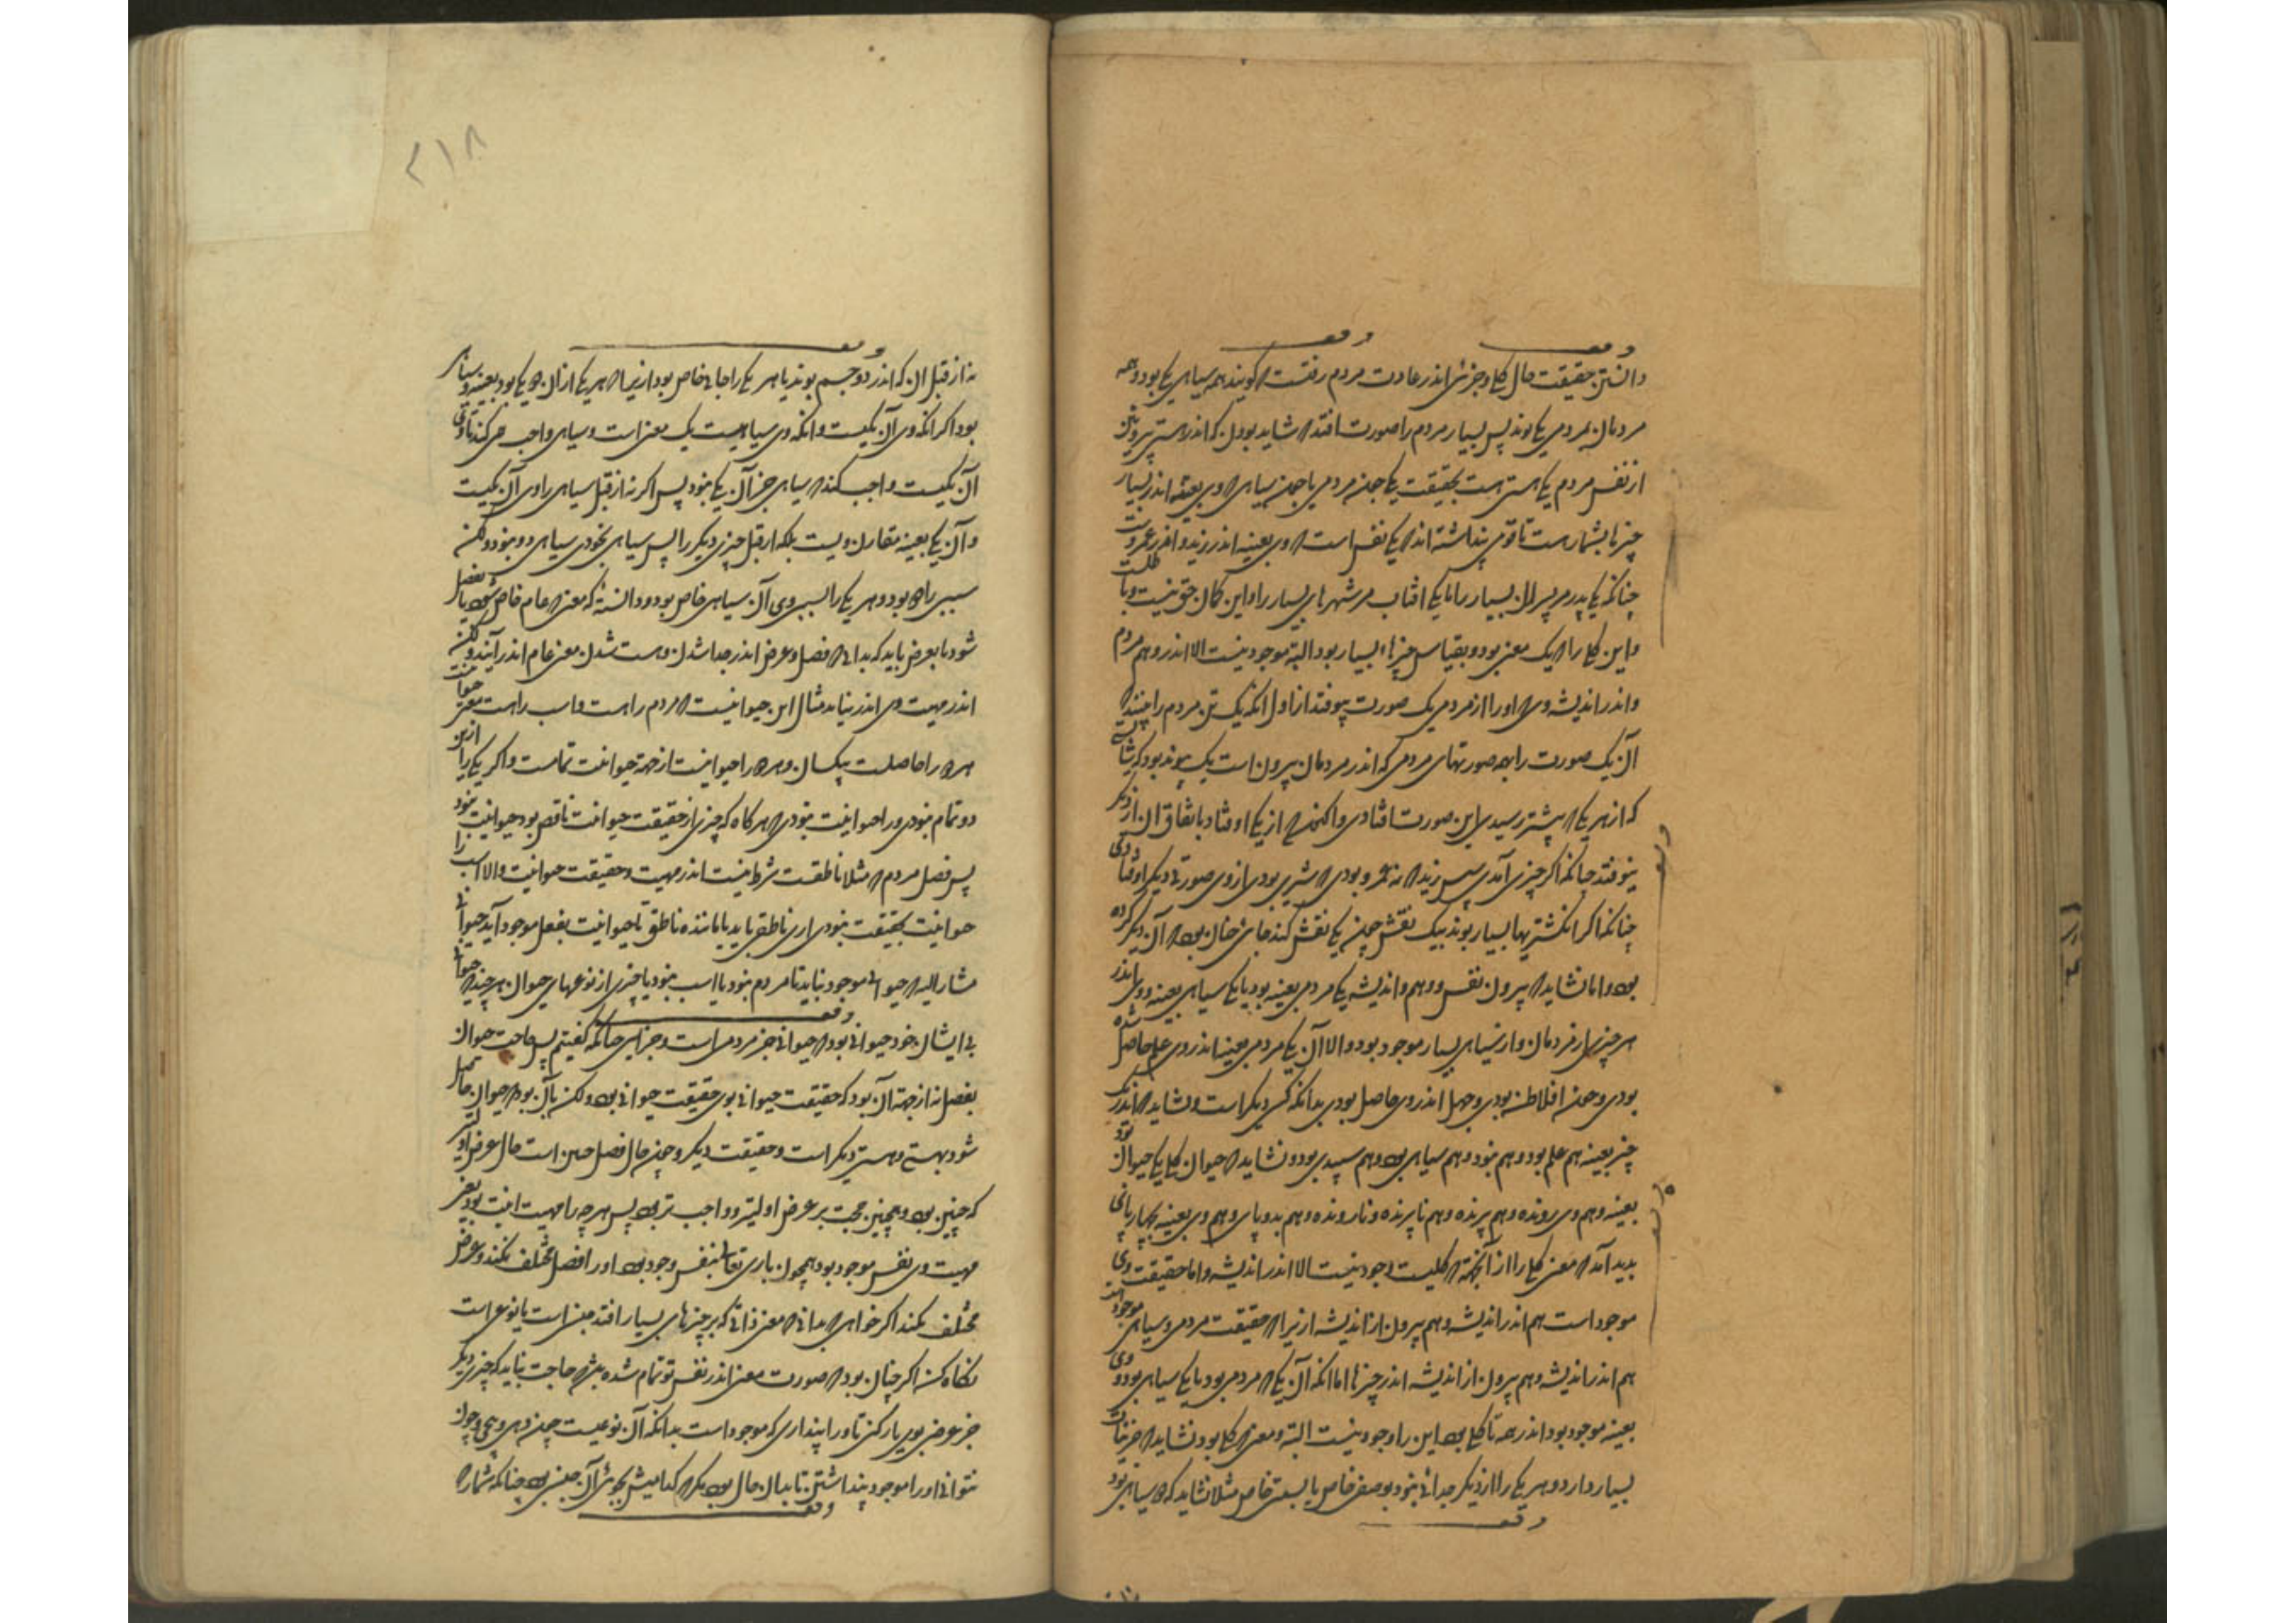 دانستن حقیقت حال کلی و جزئی اندر عادت مردم رفتست که گویند همه سیاهی یکی بود و همه
مردمان بمردمی یکی بوند پس بسیار مردم را صورت افتد که شاید بودن که اندر هستی بیرون
از نفس مردم یکی هستی هست بحقیقت یکی چون مردمی یا چون سیاهی که وی بعینه اندر بسیار
چیزها بشمارست تا قومی پنداشته اند که یکی نفس است که وی بعینه اندر زید و اندر عمروست
چنانکه یکی پدر مر پسران بسیار را یا یکی آفتاب مر شهرهای بسیار را و این گمان حق نیست و باطلست
و این کلی را که یک معنی بود و بقیاس چیزهای بسیار بود البته موجود نیست الا اندر وهم مردم
و اندر اندیشه وی که او را از مردمی یک صورت بیوفتد از اول آنکه یک تن مردم را بیند که
آن یک صورت را بهمه صورتهای مردمی که اندر مردمان بیرون است یک پیوند بود که
که از هر یکی که پیشتر رسیدی این صورت افتادی و آنکه از یکی اوفتاد باتفاق آن از دیگر
نیوفتد چنانکه اگر چیزی آمدی سپس زید که نه عمرو بودی که شیری بودی از وی صورتی دیگر اوفتادی
چنانکه اگر انگشتریها بسیار بوند بیک نقش چون یکی نقش کند جائی چنان بود که آن دیگر کرده
بود و اما نشاید که بیرون نفس و وهم و اندیشه یکی مردمی بعینه بود یا یکی سیاهی بعینه و وی اندر
هر چیزی از مردمان و از سیاهی بسیار موجود بود و الا آن یکی مردمی بعینه اندر وی علم حاصل شده
بودی و چون افلاطن بودی و جهل اندر وی حاصل بودی بدانکه کسی دیگر است و نشاید که اندر یک
چیز بعینه هم علم بود و هم نبود و هم سیاهی بود و هم سپیدی بود و نشاید که حیوان کلی یکی حیوان بود
بعینه و هم وی رونده و هم پرنده و هم ناپرنده و نارونده و هم بدو پای و هم وی بعینه بچهار پای
پدید آمد که معنی کلی را از آنجهت که کلیست وجود نیست الا اندر اندیشه و اما حقیقت وی
موجود است هم اندر اندیشه و هم بیرون از اندیشه ازیرا که حقیقت مردمی و سیاهی موجودست
هم اندر اندیشه و هم بیرون از اندیشه اندر چیزها اما آنکه آن یکی که مردمی بود یا یکی سیاهی بود و وی
بعینه موجود بود اندر همه تا کلی بود این را وجود نیست البته و معنی که کلی بود نشاید که جزئیات
بسیار دارد و هر یکی را از دیگر جدائی نبود بوصفی خاص یا بنسبتی خاص مثلا نشاید که دو سیاهی بود
۲۱۸
نه از قبل آن که اندر دو جسم بوند یا هر یکی را حالی خاص بود ازیرا که هر یکی از آن دو یکی بود بعینه و سیاهی
بود اگر آنکه وی آن یکیست و آنکه وی سیاهیست یک معنی است و سیاهی واجب همی کند تا وی
آن یکیست واجب کند که سیاهی جز آن یکی نبود پس اگر نه از قبل سیاهی را وی آن یکیست
و آن یکی بعینه مقارن ویست بلکه از قبل چیزی دیگر را پس سیاهی بخودی سیاهی دو نبود ولکن
سببی را دو بود و هر یکی را بسببی وی آن سیاهی خاص بود و دانسته که معنی عام خاص شود یا بفصل
شود یا بعرض باید که بدانی که فصل و عرض اندر جدا شدن و هست شدن معنی عام اندر آیند ولکن
اندر مهیت وی اندر نیاید مثال این حیوانیست که مردم را هست و اسب را هست معنی حیوانیت
هر دو را حاصلست بیکسان و هر دو را حیوانیت از جهت حیوانیت تمامست و اگر یکی را ازین
دو تمام نبودی ورا حیوانیت نبودی که هر گاه که چیزی از حقیقت حیوانیت ناقص بود حیوانیت نبود
پس فصل مردم که مثلا ناطقست شرط نیست اندر مهیت و حقیقت حیوانیت و الا اسب را
حیوانیت بحقیقت نبودی آری ناطقی باید یا ماننده ناطق تا حیوانیت بفعل موجود آید حیوانی
مشار الیه که حیوانی موجود نیاید تا مردم نبود یا اسب نبود یا چیزی از نوعهای حیوان هر چند که حیوانی
بی ایشان خود حیوانی بود که حیوانی جز مردمی است و جز اسپی چنانکه گفتیم پس حاجت حیوان
بفصل نه از جهت آن بود که حقیقت حیوانی بوی حقیقت حیوانی بود ولکن بآن بود که حیوان حاصل
شود بهستی و هستی دیگر است و حقیقت دیگر و چون حال فصل چنین است حال عرض اولیتر
که چنین بود و همچنین حجت بر عرض اولیتر و واجب تر بود پس هر چه را مهیت انیت بود یعنی
مهیت وی نفس موجود بود همچون باری تعالی بنفس وجود بود او را فصل مختلف نکند و عرض
مختلف نکند اگر خواهی که بدانی که معنی ذاتی که بر چیزهای بسیار افتد جنس است یا نوع است
نگاه کن اگر چنان بود که صورت معنی اندر نفس تو تمام شده حاجت نیاید که چیزی دیگر
جز عرض بوی یار کنی تا ورا پنداری که موجود است بدانکه آن نوعیست چون دهی و پنجی و چون
نتوانی او را موجود پنداشتن تا بدان حال بود مگر که کدامیش بجوئی آن جنس بود چنانکه شمار که